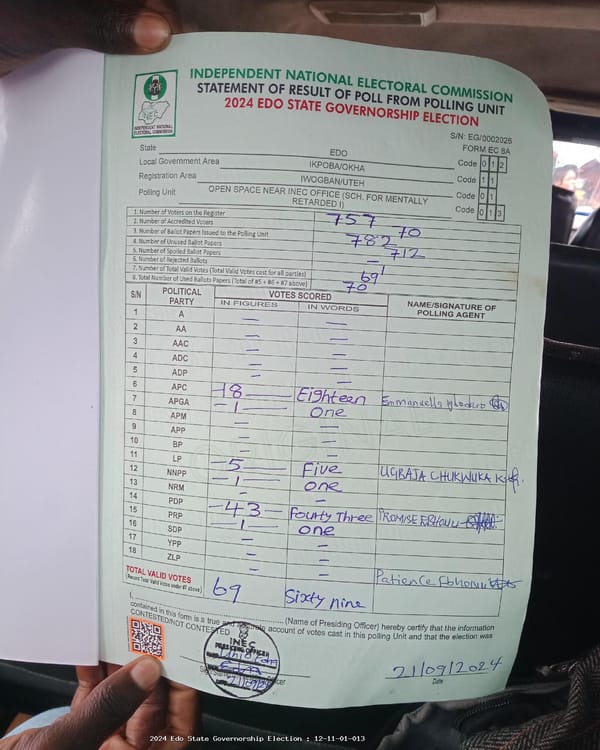 INDEPENDENT NATIONAL ELECTORAL COMMISSION
STATEMENT OF RESULT OF POLL FROM POLLING UNIT
2024 EDO STATE GOVERNORSHIP ELECTION
INEC
INDEPENDENT NATIONAL ELECTORAL COMMISSION
S/N: EG/0002026
FORM EC 8A
State EDO Code 0 1 2
Local Government Area IKPOBA/OKHA Code 1 1
Registration Area IWOGBAN/UTEH Code 0 1
Polling Unit OPEN SPACE NEAR INEC OFFICE (SCH. FOR MENTALLY RETARDED I) Code 0 1 3
1. Number of Voters on the Register 757
2. Number of Accredited Voters 70
3. Number of Ballot Papers Issued to the Polling Unit 782
4. Number of Unused Ballot Papers 712
5. Number of Spoiled Ballot Papers –
6. Number of Rejected Ballots 1
7. Number of Total Valid Votes (Total Valid Votes cast for all parties) 69
8. Total Number of Used Ballots Papers (Total of #5 + #6 + #7 above) 70
S/N POLITICAL PARTY VOTES SCORED NAME/SIGNATURE OF POLLING AGENT
IN FIGURES IN WORDS
1 A – –
2 AA – –
3 AAC – –
4 ADC – –
5 ADP – –
6 APC 18 Eighteen Emmanuella
7 APGA 1 One
8 APM – –
9 APP – –
10 BP – –
11 LP 5 Five UGBAJA CHUKWUKA
12 NNPP 1 one
13 NRM – –
14 PDP 43 Fourty Three PROMISE
15 PRP 1 one
16 SDP – –
17 YPP – –
18 ZLP – – Patience
TOTAL VALID VOTES 69 Sixty nine
(Record Total Valid Votes under #7 above)
I, (Name of Presiding Officer) hereby certify that the information
contained in this form is a true and accurate account of votes cast in this polling Unit and that the election was
CONTESTED/NOT CONTESTED
INEC
PRESIDING OFFICER
21/09/2024
Date
2024 Edo State Governorship Election : 12-11-01-013